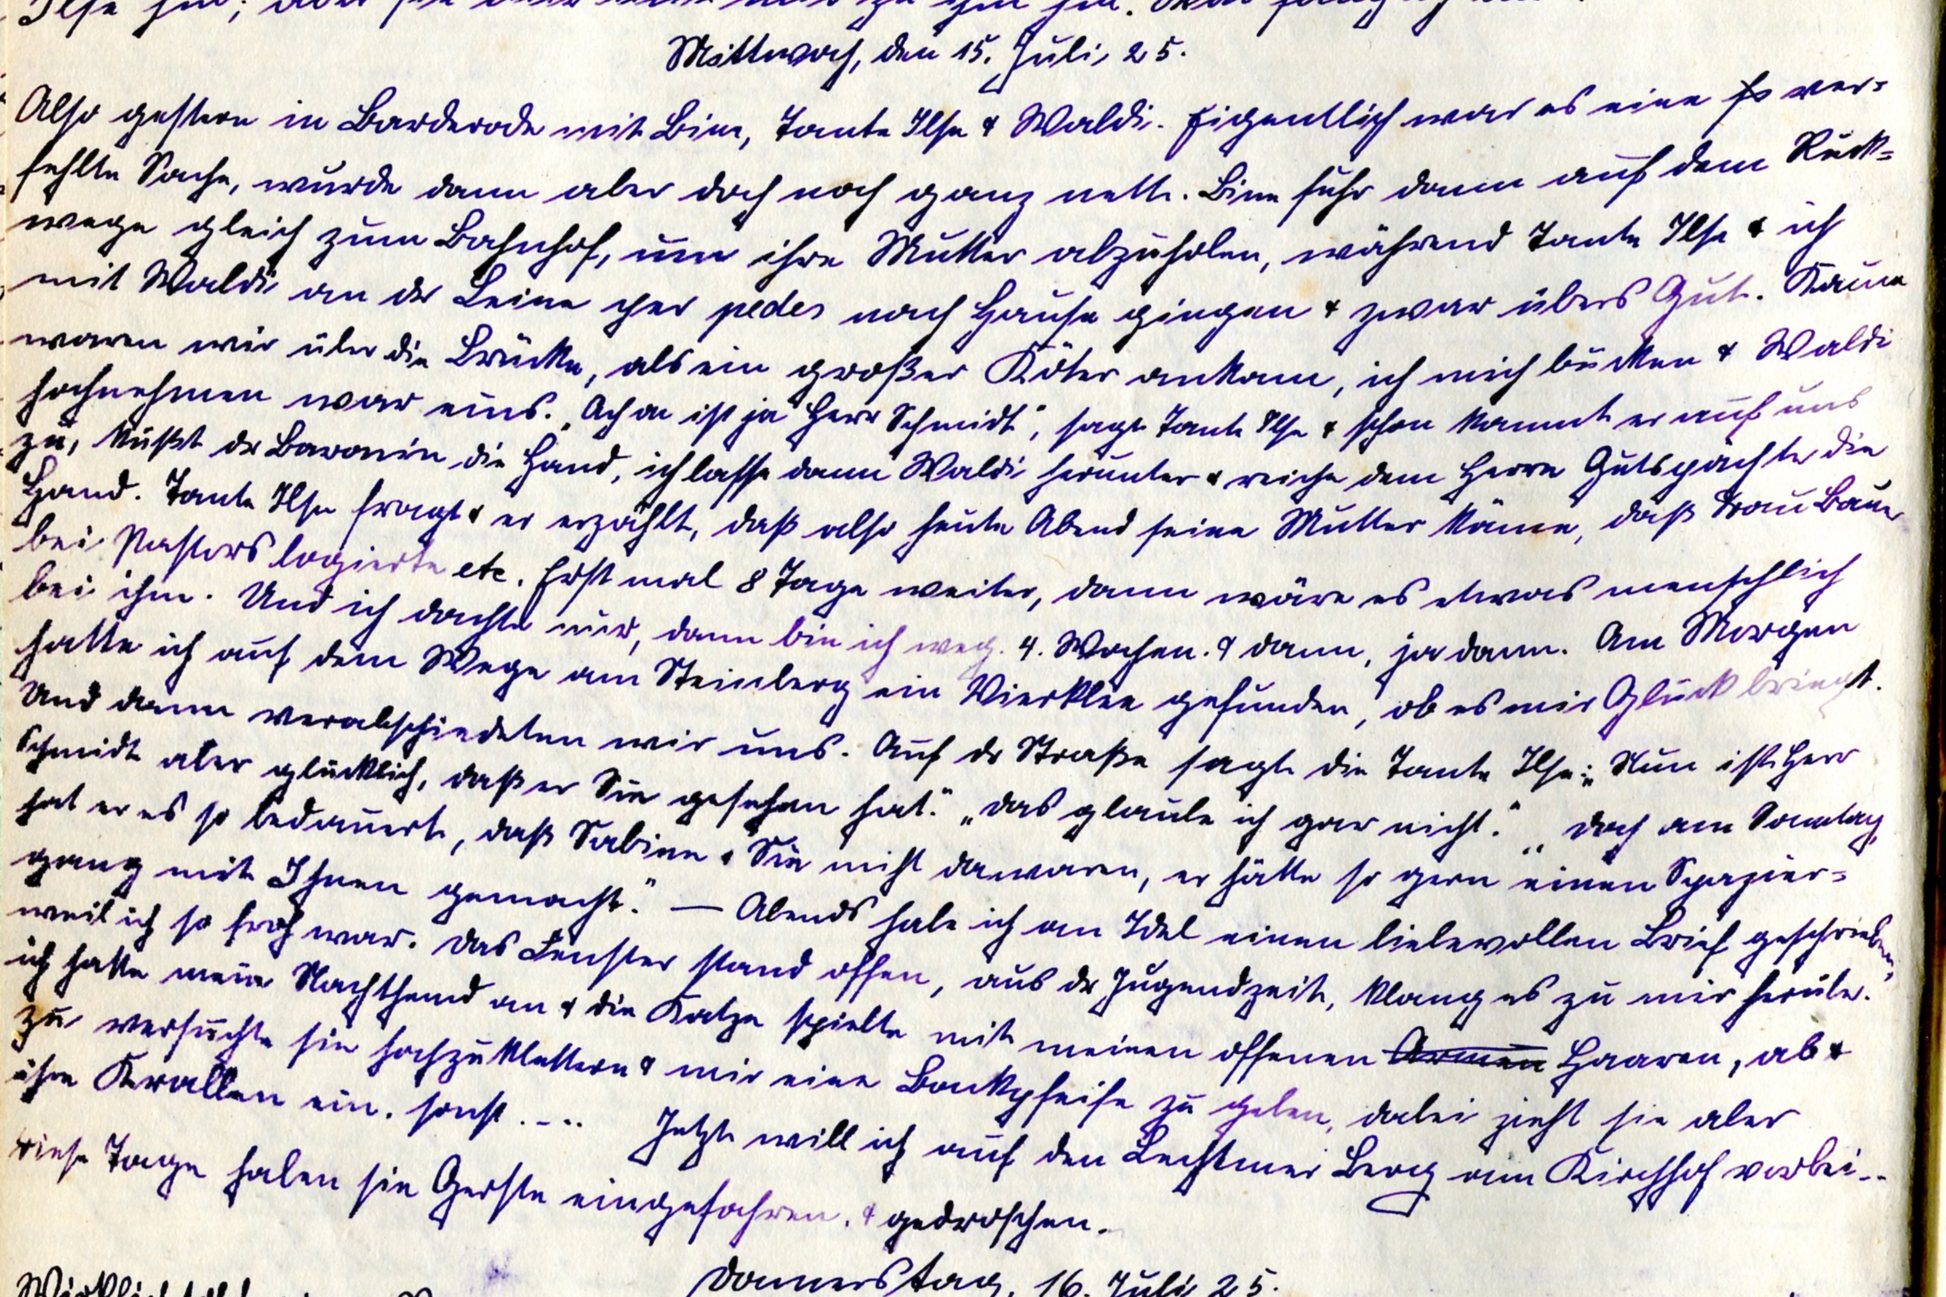 Ilse hin; aber
Mittwoch, den 15. Juli 25.
Also gestern in Barderode mit Bine, Tante Ilse & Waldi. Eigentlich war es eine ver-
fehlte Sache, wurde dann aber doch noch ganz nett. Bine fuhr dann auf dem Rück-
wege gleich zum Bahnhof, um ihre Mutter abzuholen, während Tante Ilse & ich
mit Waldi an der Leine per pedes nach Hause gingen & zwar übers Gut. Kaum
waren wir über die Brücke, als ein großer Köter ankam, ich mich bücken & Waldi
hochnehmen war eins. „Ach da ist ja Herr Schmidt", sagt Tante Ilse & schon kommt er auf uns
zu, küßt der Baronin die Hand, ich lasse dann Waldi herunter & reiche dem Herrn Gutspächter die
Hand. Tante Ilse fragt & er erzählt, daß also heute Abend seine Mutter käme, daß Frau Baum
bei Pastors logierte etc. Erst mal 8 Tage weiter, dann wäre es etwas menschlich
bei ihm. Und ich dachte nur, dann bin ich weg. 4. Wochen. & dann, ja dann. Am Morgen
hatte ich auf dem Wege am Steinberg ein Vierklee gefunden, ob es mir Glück bringt.
Und dann verabschiedeten wir uns. Auf der Straße sagte die Tante Ilse: „Nun ist Herr
Schmidt aber glücklich, daß er Sie gesehen hat." „Das glaube ich gar nicht." „Doch am Sonntag,
hat er es so bedauert, daß Sabine & Sie nicht da waren, er hätte so gern einen Spazier-
gang mit Ihnen gemacht." — Abends habe ich an Idel einen liebevollen Brief geschrieben,
weil ich so froh war. Das Fenster stand offen, aus der Jugendzeit, klang es zu mir herüber.
ich hatte mein Nachthemd an & die Katze spielte mit meinen offenen Armen Haaren, ab &
zu versuchte sie hochzuklettern & mir eine Backpfeife zu geben, dabei zieht sie aber
ihre Krallen ein. sonst.... Jetzt will ich auf den Lechtmer Berg am Kirchhof vorbei..
diese Tage haben sie Gerste eingefahren. & gedroschen.
Donnerstag, 16. Juli 25.